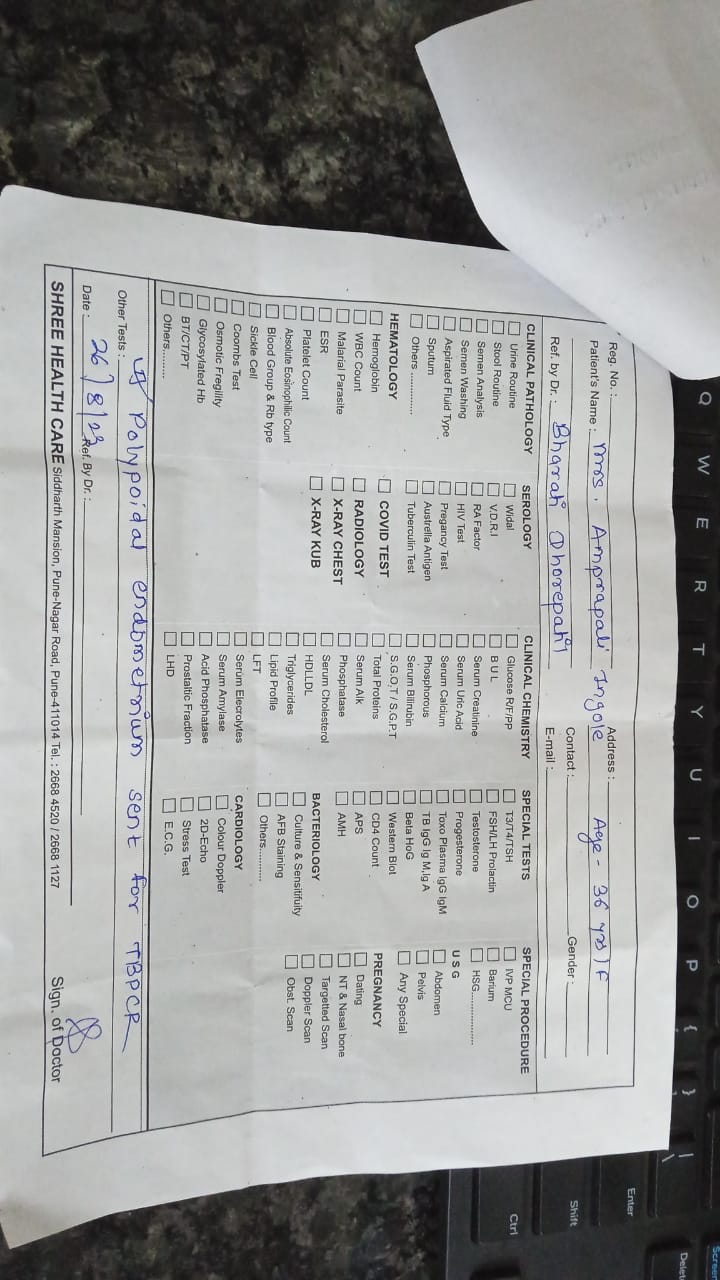 Reg. No. :
Address :
Patient's Name : Mrs. Amprapali Ingole Age - 36 yrs / F
Contact :
Gender :
Ref. by Dr. : Bharati Dhorepati
E-mail :
CLINICAL PATHOLOGY
Urine Routine
Stool Routine
Semen Analysis
Semen Washing
Aspirated Fluid Type
Sputum
Others .............
HEMATOLOGY
Hemoglobin
WBC Count
Malarial Parasite
ESR
Platelet Count
Absolute Eosinophilic Count
Blood Group & Rb type
Sickle Cell
Coombs Test
Osmotic Fregility
Glycosylated Hb
BT/CT/PT
Others.........
SEROLOGY
Widal
V.D.R.I
RA Factor
HIV Test
Pregancy Test
Austrella Antigen
Tuberculin Test
COVID TEST
RADIOLOGY
X-RAY CHEST
X-RAY KUB
CLINICAL CHEMISTRY
Glucose R/F/PP
B U L
Serum Creatinine
Serum Uric Acid
Serum Calcium
Phosphorous
Serum Bilirubin
S.G.O.T / S.G.P.T
Total Proteins
Serum Alk
Phosphatase
Serum Cholesterol
HDLLDL
Triglycerides
Lipid Profile
LFT
Serum Elecrolytes
Serum Amylase
Acid Phosphatase
Prostaltic Fraction
LHD
SPECIAL TESTS
T3/T4/TSH
FSH/LH Prolactin
Testosterone
Progesterone
Toxo Plasma IgG IgM
TB IgG Ig M,Ig A
Beta HoG
Western Blot
CD4 Count
APS
AMH
BACTERIOLOGY
Culture & Sensitifuity
AFB Staining
Others...........
CARDIOLOGY
Colour Doppler
2D-Echo
Stress Test
E.C.G.
SPECIAL PROCEDURE
IVP MCU
Barium
HSG....................
U S G
Abdomen
Pelvis
Any Special
PREGNANCY
Dating
NT & Nasal bone
Targetted Scan
Doppler Scan
Obst. Scan
Other Tests : Polypoidal endometrium sent for TBPCR
Date : 26/8/23 Ref. By Dr. :
Sign. of Doctor
SHREE HEALTH CARE Siddharth Mansion, Pune-Nagar Road, Pune-411014 Tel. : 2668 4520 / 2668 1127
Q W E R T Y U I O P { }
Enter
Shift
Ctrl